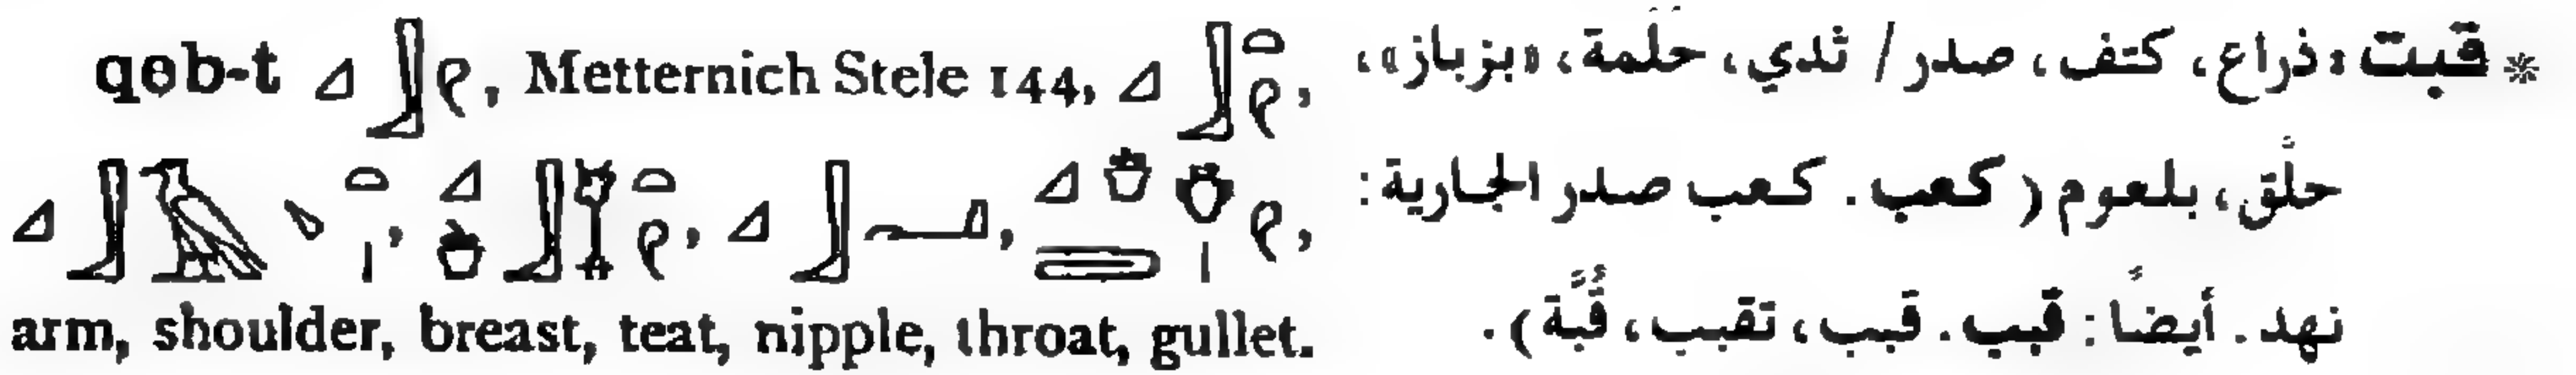 qeb-t , Metternich Stele 144,
arm, shoulder, breast, teat, nipple, throat, gullet.
* قبت «ذراع، كتف، صدر / ثدي، حَلَمة، «بزباز»،
حلْق، بلعوم (كعب. كعب صدر الجارية:
نهد. أيضاً: قبب. قبب، تقبب، قُبَّة).